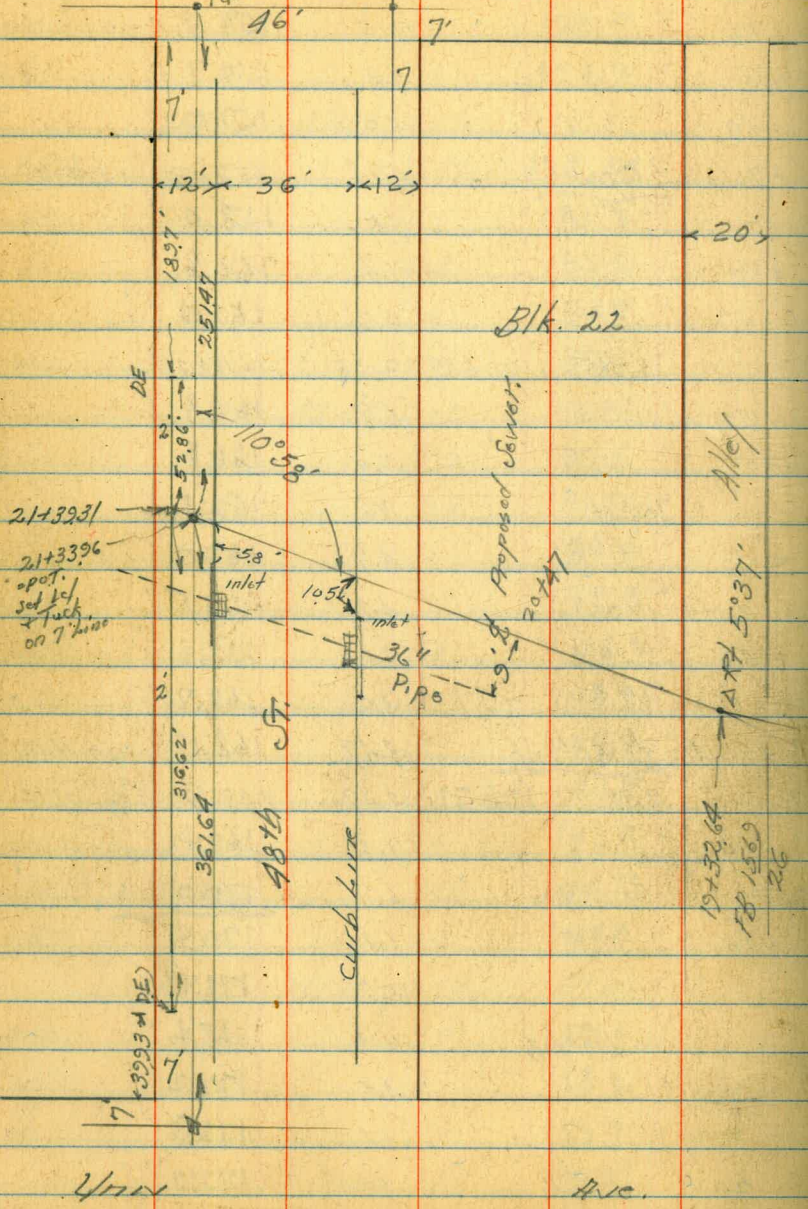 46'
7'
7
7'
12'
36'
12'
20'
189.7'
251.47
Blk. 22
DE
2'
52.86'
110° 58'
Proposed Sewer.
Alley
21+39.31
21+33.96
pot.
set L &
Tack
on 7' line
5.8
inlet
10.5
inlet
36"
Pipe
9'
20+47
Δ Rt 5°37'
2'
316.62'
361.64
48th St.
Curb Line
19+32.64
FB 1569
26
7'
7'
Ave.